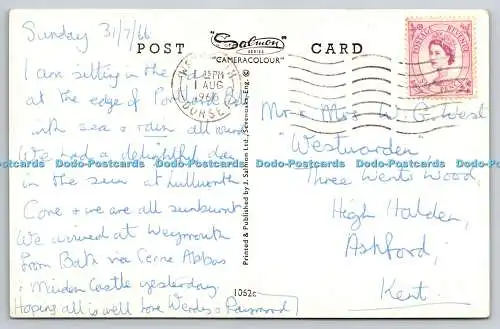 Sunday 31/7/66
POST "Salmon SERIES "CAMERACOLOUR" CARD
POSTAGE REVENUE
I am sitting in the
at the edge of Portland
with sea & rain all around
We had a delightful day
in the sun at Lulworth
Cove & we are all sunburnt
We arrived at Weymouth
from Bath via Cerne Abbas
& Maiden Castle yesterday
Hoping all is well love Wendy & Raymond
PM
1 AUG
1966
DORSET
Printed & Published by J. Salmon Ltd., Sevenoaks, Eng. ©
1052c
Mr & Mrs W. G. West
"Westwarden"
Three Wents Wood,
High Halden,
Ashford,
Kent.
Dodo-Postcards Dodo-Postcards Dodo-Postcards Dodo-Postcards Dodo-Postcards Dodo-Postcards